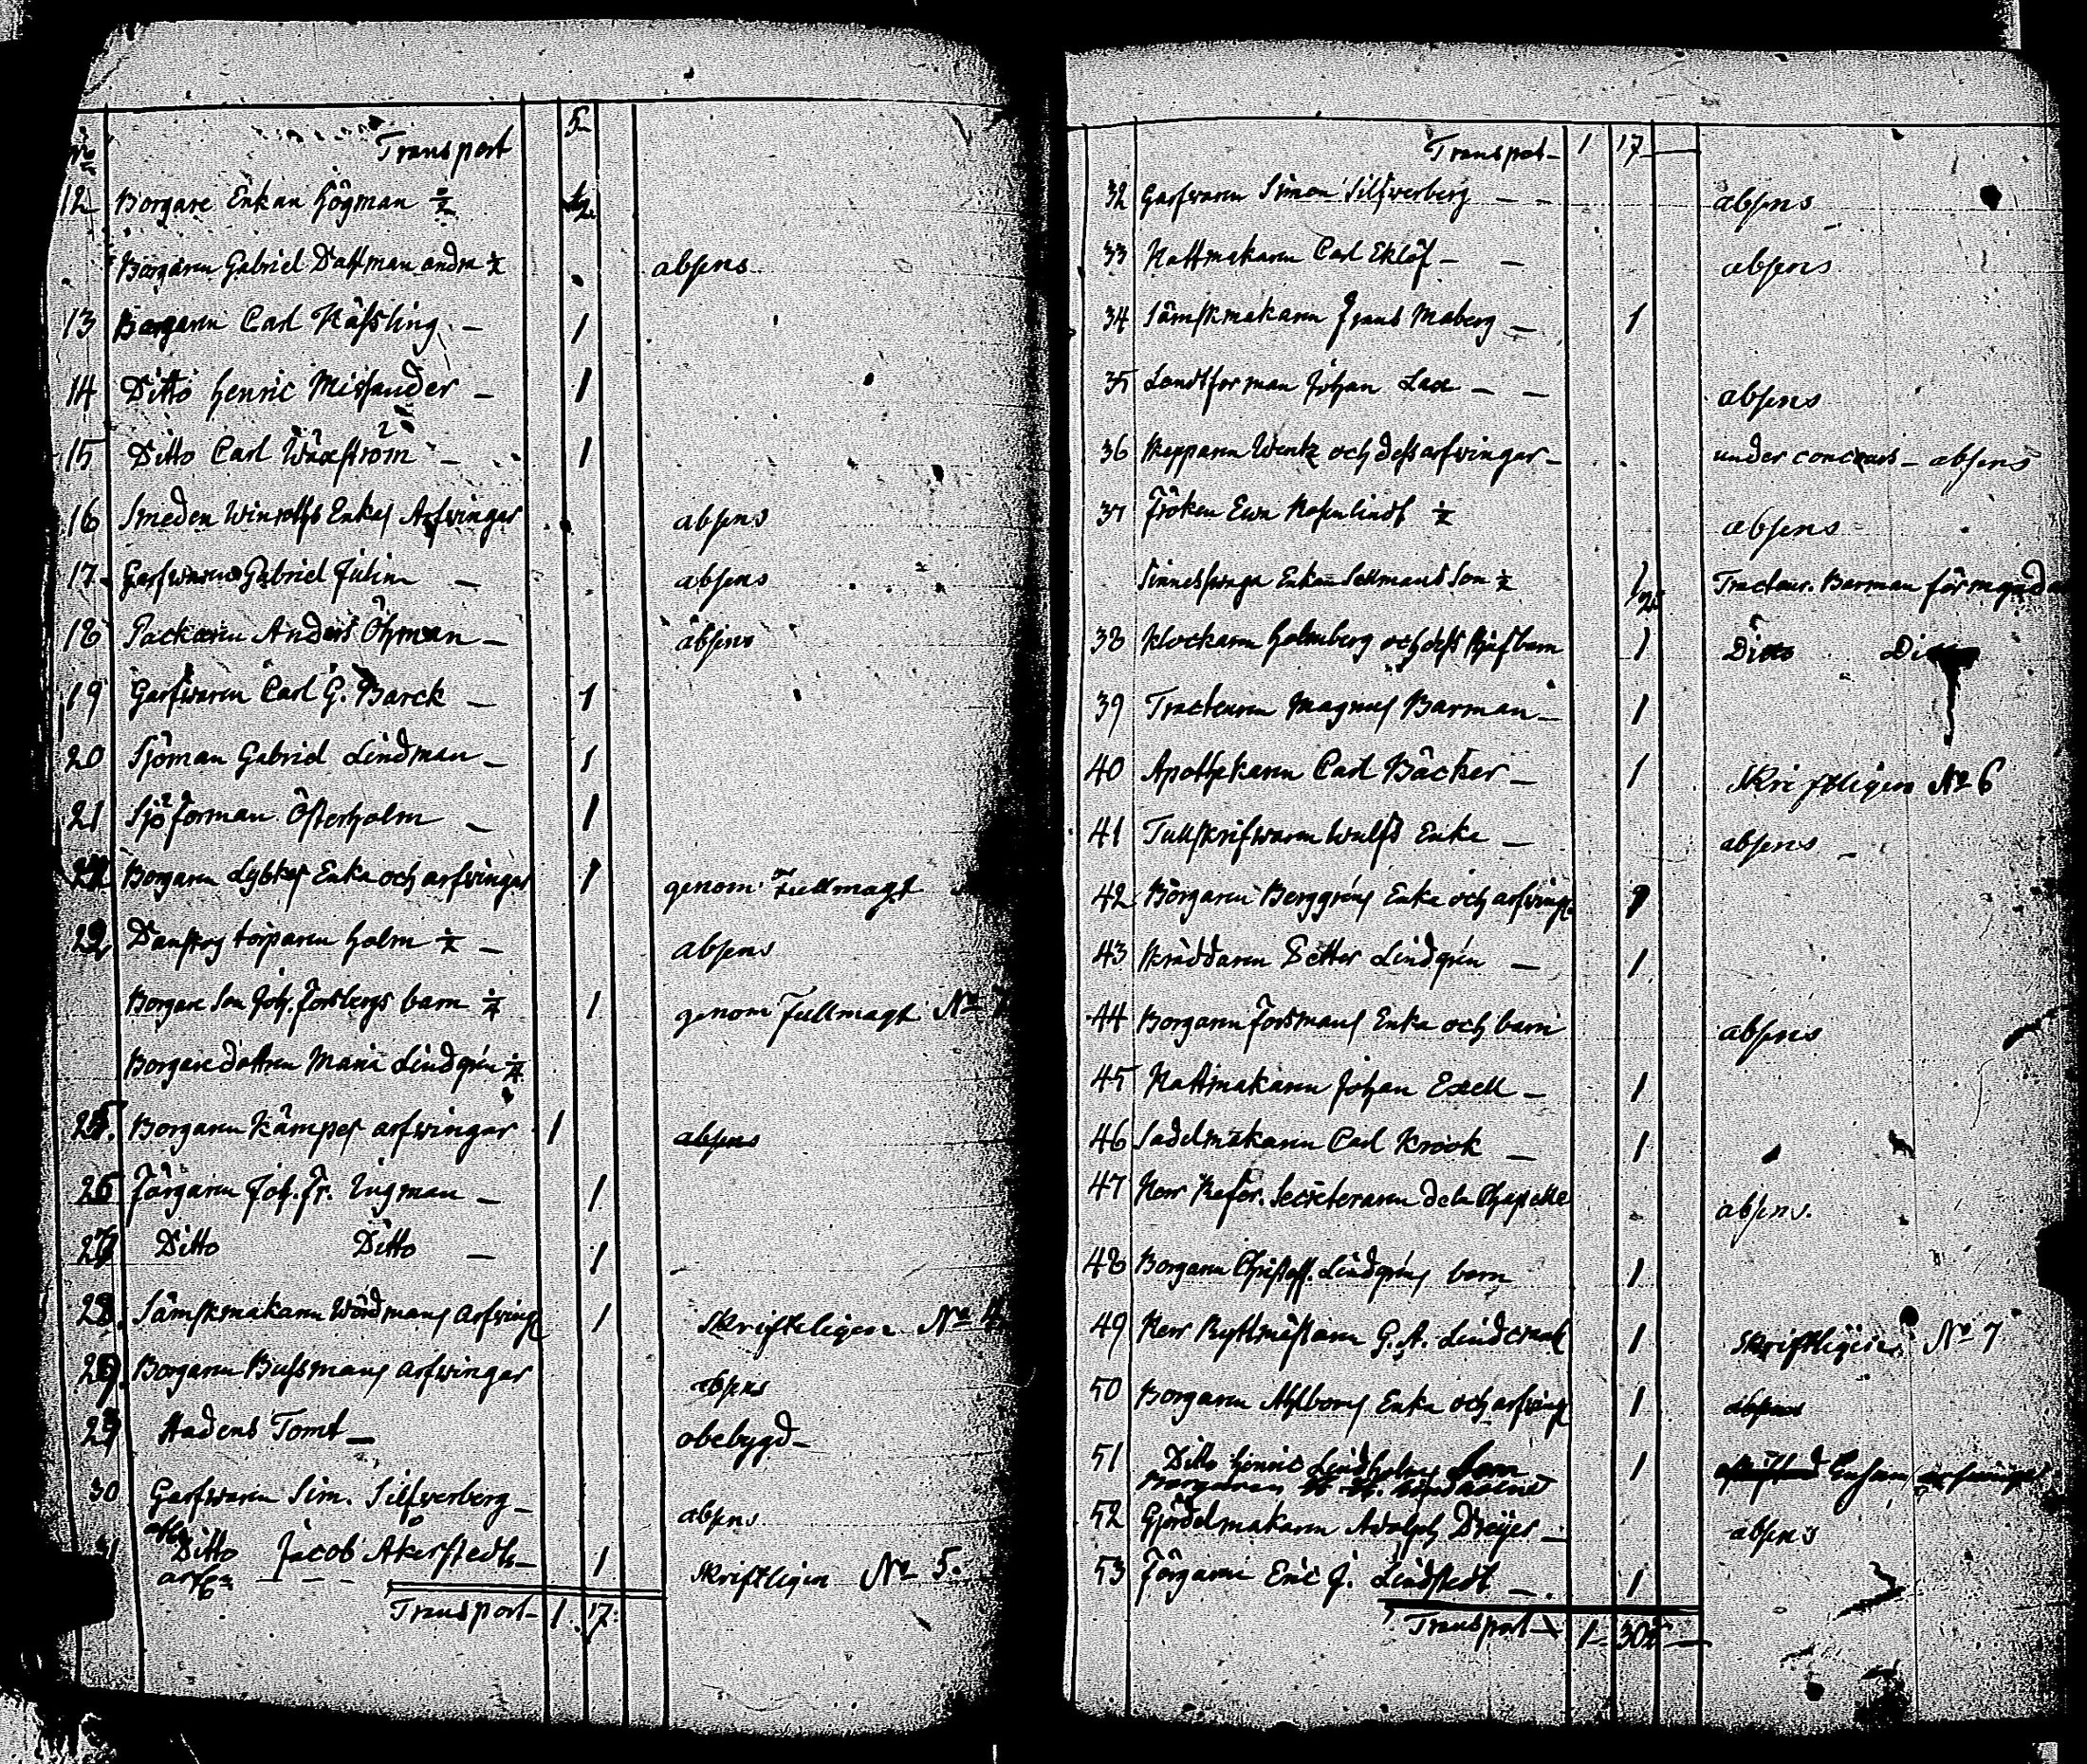 No Transport 5
12 Borgare Enkan Högman ½ ½
Borgaren Gabriel Dahlman andra ½ absens
13 Borgaren Carl Häfsling — 1
14 Ditto Henric Missander — 1
15 Ditto Carl Wäxström — 1
16 Smeden Winroths Enkas Arfvingar absens
17 Garfvaren Gabriel Julin — absens
18 Packaren Anders Öhman — absens
19 Garfvaren Carl G. Barck — 1
20 Sjöman Gabriel Lindman — 1
21 Sjöförman Österholm — 1
Borgaren Lybkes Enka och arfvingar 1 genom Fullmagt
torparen Holm ½ — absens
Borgare Son Joh. Forsbergs barn ¼ 1 genom Fullmagt No
Borgare dottren Maria Lindgrén ¼
25. Borgaren Kämpes arfvingar 1 absens
26 Färgaren Joh. Fr. Ingman — 1
27 Ditto Ditto — 1
28. Sämskmakaren Wördmans Arfving 1 Skrifteligen No 4
Borgaren Bussmans arfvingar absens
29 Stadens Tomt — obebygd —
30 Garfvaren Sim. Silfverberg — absens
31 Ditto Jacob Åkerstedts — 1 Skriftligen No 5.
Transport — 1. 17.
Transport — 1 17 —
32 Garfvaren Simon Silfverberg — — absens
33 Hattmakaren Carl Eklöf — — absens
34 Sämskmakaren Frans Moberg — 1
35 Landtforman Johan Lax — — absens
36 Skepparen Wentz och dess arfvingar — under concurs — absens
37 Fröken Ewa Rosenlindt ½ absens
Enkan Sellmans Son ½ ½ Tracteur. Barman
38 Klockaren Holmberg och dess Styfbarn 1 Ditto
39 Tracteuren Magnus Barman — 1
40 Apothekaren Carl Bäcker — 1 Skriftligen No 6
41 Tullskrifvaren Wulfs Enka — absens —
42 Borgaren Berggréns Enka och arfving 1
43 Skräddaren Petter Lindgrén — 1
44 Borgaren Forsmans Enka och barn absens
45 Hattmakaren Johan Exell — 1
46 Sadelmakaren Carl Krook — 1
47 Herr Refer. Secreteraren de la Chapelle absens.
48 Borgaren Christoff. Lindgréns barn 1
49 Herr Ryttmästaren G. A. Lindcrantz 1 Skriftligen No 7
50 Borgaren Ahlboms Enka och arfving 1 absens
51 Ditto Henric Lindholms 1
52 Gjördelmakaren Adolph Dreijer — absens
53 Färgaren Eric J. Lindstedt — 1
Transport — 1 — 30½ —